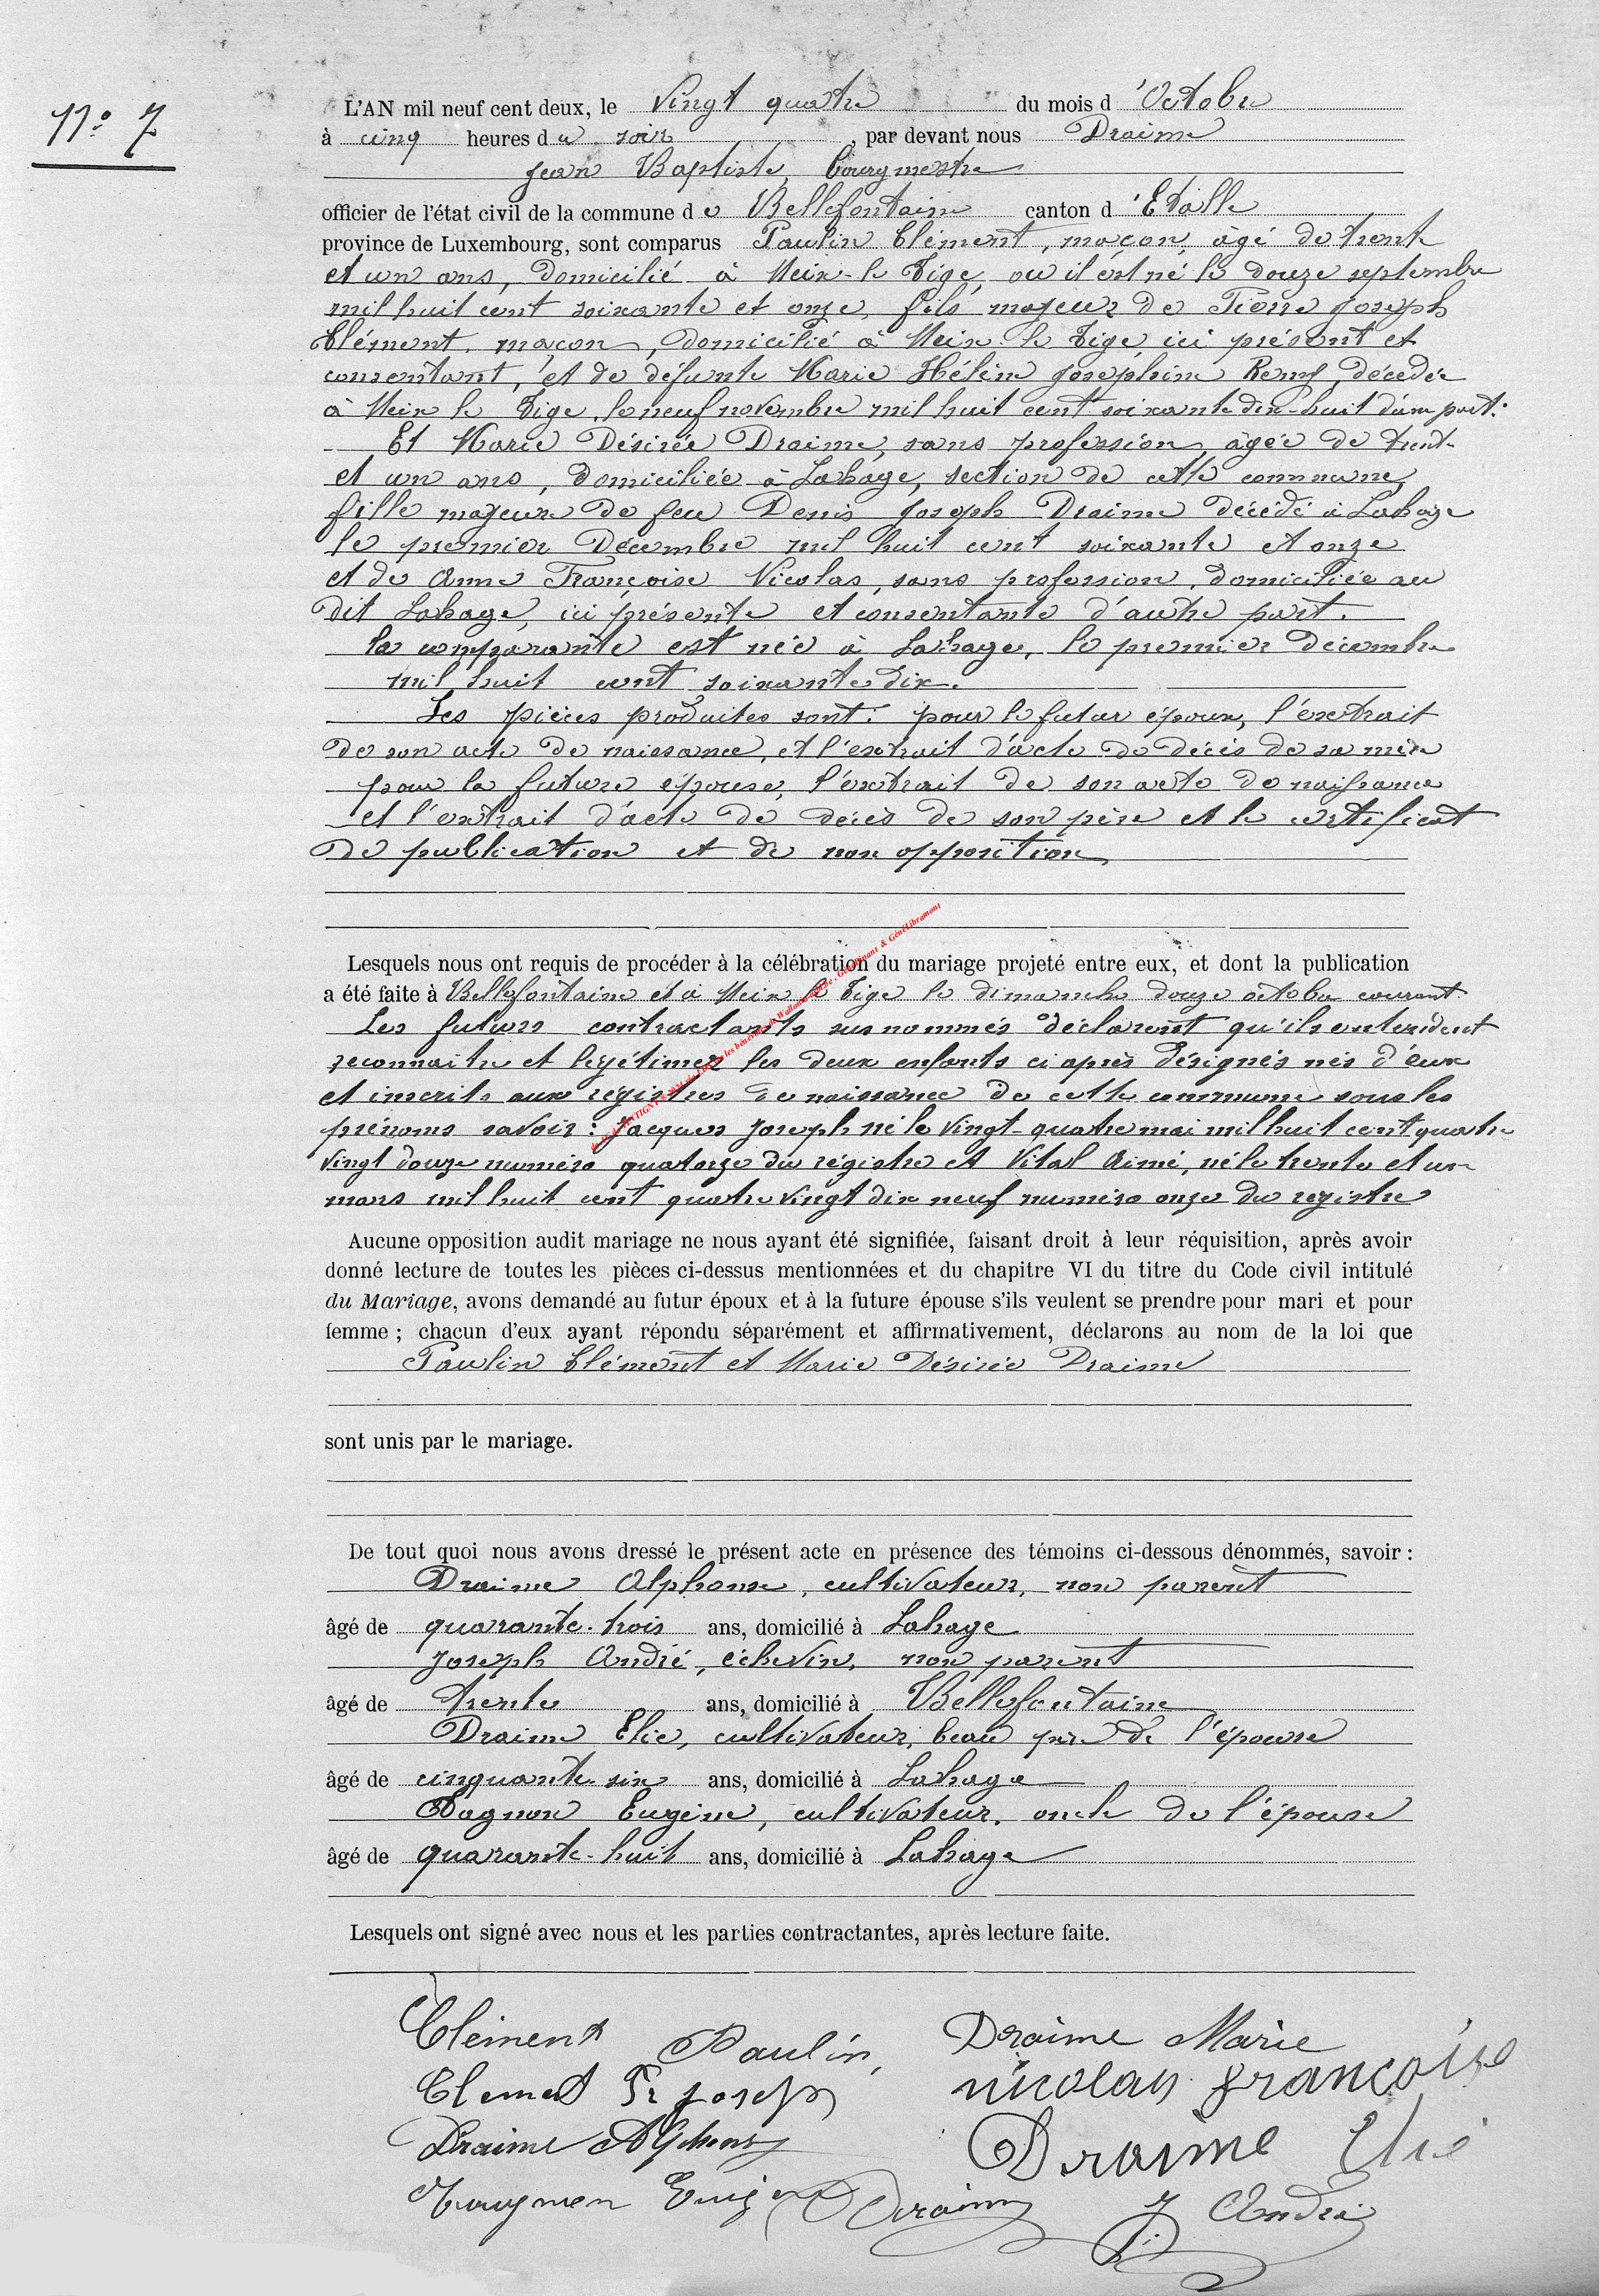 N° 7
L'AN mil neuf cent deux, le Vingt quatre du mois d'Octobre
à cinq heures du soir, par devant nous Draime
Jean Baptiste, bourgmestre
officier de l'état civil de la commune de Bellefontaine canton d'Etalle
province de Luxembourg, sont comparus Paulin Clément, maçon, âgé de trente
et un ans, domicilié à Meix-le Tige, où il est né le douze septembre
mil huit cent soixante et onze, fils majeur de Pierre Joseph
Clément, maçon, domicilié à Meix le Tige, ici présent et
consentant, et de défunte Marie Hélène Josephine Remy, décédée
à Meix le Tige, le neuf novembre mil huit cent soixante dix-huit d'une part.
Et Marie Désirée Draime, sans profession, âgée de trente
et un ans, domiciliée à Lahage, section de cette commune,
fille majeure de feu Denis Joseph Draime décédé à Lahage
le premier Décembre mil huit cent soixante et onze
et de Anne Françoise Nicolas, sans profession, domiciliée au
dit Lahage, ici présente et consentante d'autre part.
la comparante est née à Lahage, le premier décembre
mil huit cent soixante dix.
Les pièces produites sont: pour le futur époux, l'extrait
de son acte de naissance, et l'extrait d'acte de décès de sa mère
pour la future épouse, l'extrait de son acte de naissance
et l'extrait d'acte de décès de son père et le certificat
de publication et de non opposition
Lesquels nous ont requis de procéder à la célébration du mariage projeté entre eux, et dont la publication
a été faite à Bellefontaine et à Meix le Tige le dimanche douze octobre courant
Les futurs contractants susnommés déclarent qu'ils entendent
reconnaitre et legétimer les deux enfants ci après désignés nés d'eux
et inscrits aux régistres de naissance de cette commune sous les
prénoms savoir: Jacques Joseph né le vingt-quatre mai mil huit cent quatre
vingt douze numéro quatorze du régistre et Vital Aimé, né le trente et un
mars mil huit cent quatre vingt dix neuf numéro onze du registre
Aucune opposition audit mariage ne nous ayant été signifiée, faisant droit à leur réquisition, après avoir
donné lecture de toutes les pièces ci-dessus mentionnées et du chapitre VI du titre du Code civil intitulé
du Mariage, avons demandé au futur époux et à la future épouse s'ils veulent se prendre pour mari et pour
femme ; chacun d'eux ayant répondu séparément et affirmativement, déclarons au nom de la loi que
Paulin Clément et Marie Désirée Draime
sont unis par le mariage.
De tout quoi nous avons dressé le présent acte en présence des témoins ci-dessous dénommés, savoir :
Draime Alphonse, cultivateur, non parent
âgé de quarante-trois ans, domicilié à Lahage
Joseph André, échevin, non parent
âgé de trente ans, domicilié à Bellefontaine
Draime Elie, cultivateur, beau père de l'épouse
âgé de cinquante-six ans, domicilié à Lahage
Eugène, cultivateur, oncle de l'épouse
âgé de quarante-huit ans, domicilié à Lahage
Lesquels ont signé avec nous et les parties contractantes, après lecture faite.
Clément Paulin, Draime Marie
Clement Pr Joseph nicolas françoise
Draime Alphonse Draime Elie
Draime J André